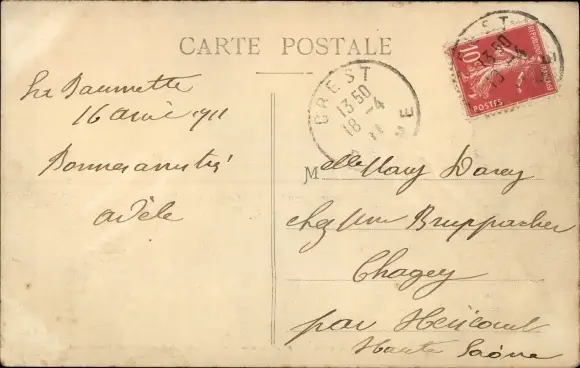 CARTE POSTALE
La Baumette
16 avril 1911
Bonnes amitiés
adèle
CREST
13 50
18 - 4
11
DROME
10
REPUBLIQUE FRANÇAISE
POSTES
Melle Mary Darey
chez Mme Bruppacher
Chagey
par Héricourt
Haute Saône